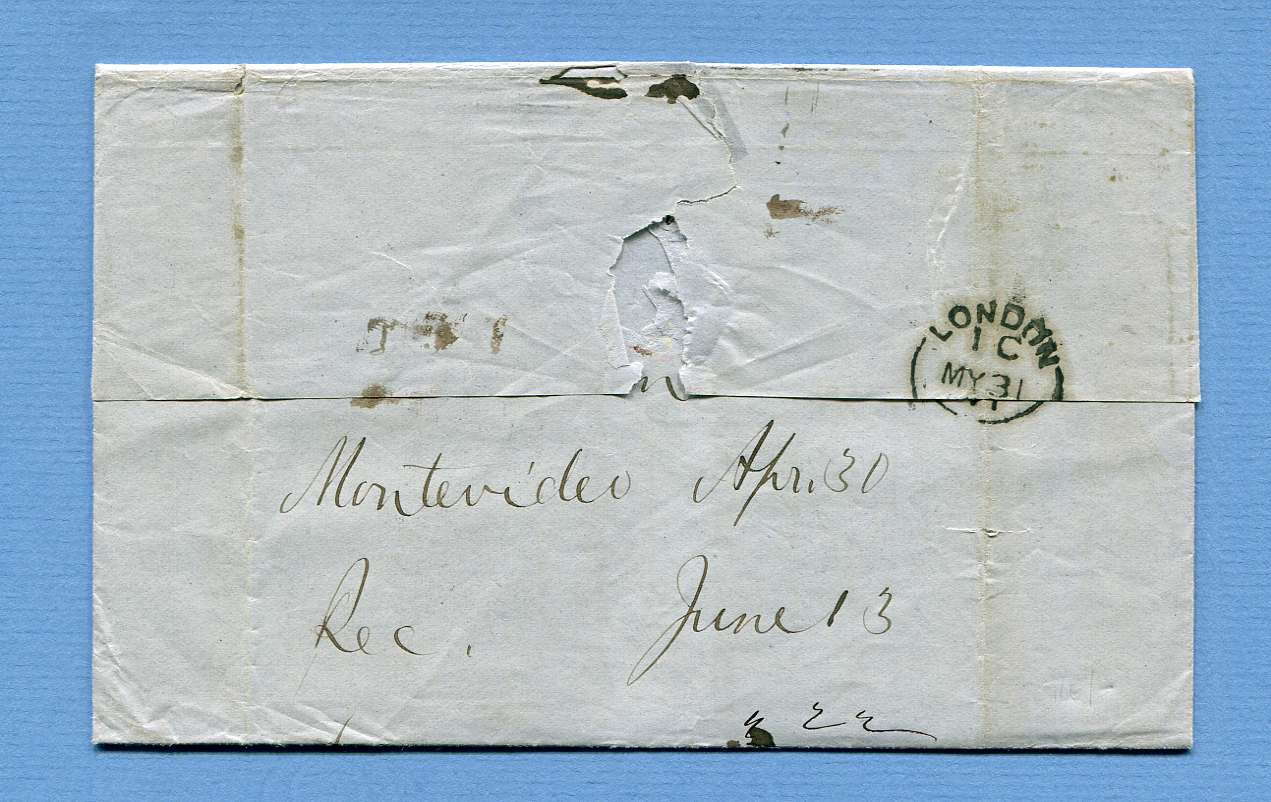 LONDON
1 C
MY 31
Montevideo Apr. 30
Rec. June 13